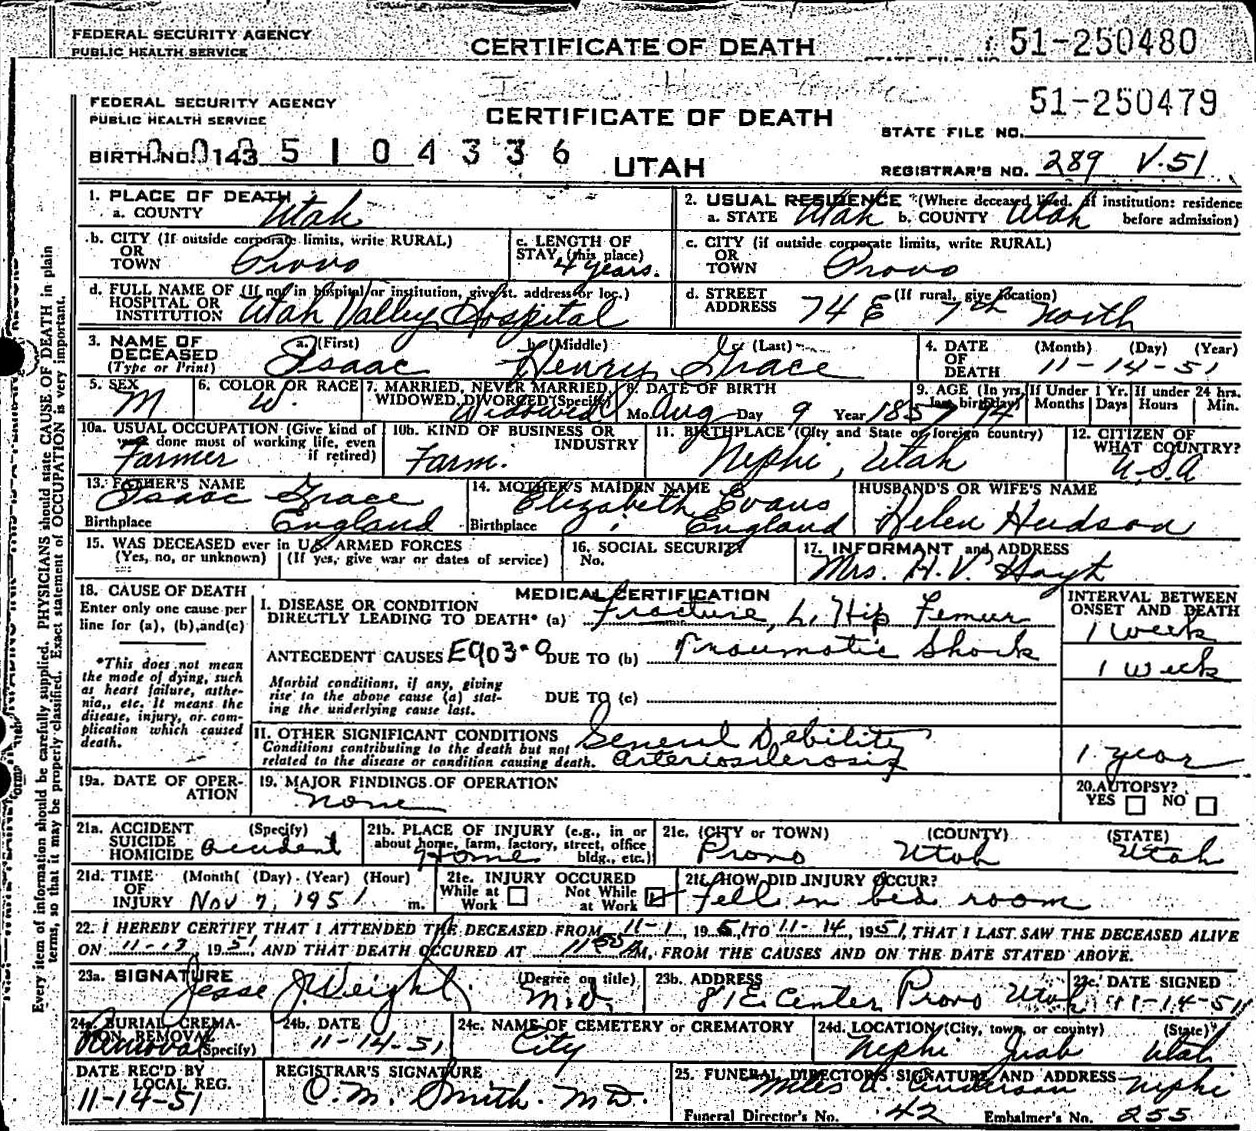 FEDERAL SECURITY AGENCY
PUBLIC HEALTH SERVICE
CERTIFICATE OF DEATH
51-250480
FEDERAL SECURITY AGENCY
PUBLIC HEALTH SERVICE
CERTIFICATE OF DEATH
51-250479
STATE FILE NO.
BIRTH NO. 143 5 1 0 4 3 3 6
UTAH
REGISTRAR'S NO. 289 V.51
1. PLACE OF DEATH
a. COUNTY Utah
2. USUAL RESIDENCE (Where deceased lived. If institution: residence before admission)
a. STATE Utah b. COUNTY Utah
b. CITY (If outside corporate limits, write RURAL)
OR
TOWN Provo
c. LENGTH OF
STAY (this place)
4 years.
c. CITY (if outside corporate limits, write RURAL)
OR
TOWN Provo
d. FULL NAME OF (If not in hospital or institution, give st. address or loc.)
HOSPITAL OR
INSTITUTION Utah Valley Hospital
d. STREET
ADDRESS (If rural, give location)
74 E 7th North
3. NAME OF
DECEASED
(Type or Print)
a. (First) b. (Middle) c. (Last)
Isaac Henry Grace
4. DATE
OF
DEATH
(Month) (Day) (Year)
11-14-51
5. SEX
M
6. COLOR OR RACE
W.
7. MARRIED, NEVER MARRIED,
WIDOWED, DIVORCED (Specify)
Widowed
8. DATE OF BIRTH
Mo. Aug Day 9 Year 1857
9. AGE (In yrs. last birthday) 94
If Under 1 Yr.
Months Days
If under 24 hrs.
Hours Min.
10a. USUAL OCCUPATION (Give kind of
work done most of working life, even
if retired)
Farmer
10b. KIND OF BUSINESS OR
INDUSTRY
Farm.
11. BIRTHPLACE (City and State or foreign country)
Nephi, Utah
12. CITIZEN OF
WHAT COUNTRY?
U.S.A
13. FATHER'S NAME
Isaac Grace
Birthplace England
14. MOTHER'S MAIDEN NAME
Elizabeth Evans
Birthplace England
HUSBAND'S OR WIFE'S NAME
Helen Hudson
15. WAS DECEASED ever in U.S. ARMED FORCES
(Yes, no, or unknown) (If yes, give war or dates of service)
16. SOCIAL SECURITY
No.
17. INFORMANT and ADDRESS
Mrs. H. V. Hoyt
18. CAUSE OF DEATH
Enter only one cause per
line for (a), (b), and (c)
*This does not mean
the mode of dying, such
as heart failure, asthe-
nia, etc. It means the
disease, injury, or com-
plication which caused
death.
MEDICAL CERTIFICATION
I. DISEASE OR CONDITION
DIRECTLY LEADING TO DEATH* (a) Fracture, L. Hip Femur
ANTECEDENT CAUSES E903-0 DUE TO (b) Traumatic Shock
Morbid conditions, if any, giving
rise to the above cause (a) stat-
ing the underlying cause last.
DUE TO (c)
II. OTHER SIGNIFICANT CONDITIONS
Conditions contributing to the death but not
related to the disease or condition causing death.
General Debility
Arteriosclerosis
INTERVAL BETWEEN
ONSET AND DEATH
1 week
1 week
1 year
19a. DATE OF OPER-
ATION
19. MAJOR FINDINGS OF OPERATION
none
20. AUTOPSY?
YES NO
21a. ACCIDENT
SUICIDE
HOMICIDE
(Specify)
accident
21b. PLACE OF INJURY (e.g., in or
about home, farm, factory, street, office
bldg., etc.)
Home
21c. (CITY or TOWN) (COUNTY) (STATE)
Provo Utah Utah
21d. TIME
OF
INJURY
(Month) (Day) (Year) (Hour)
Nov 7, 1951 m.
21e. INJURY OCCURED
While at
Work
Not While
at Work
21f. HOW DID INJURY OCCUR?
Fell in bed room
22. I HEREBY CERTIFY THAT I ATTENDED THE DECEASED FROM 11-1, 1951 TO 11-14, 1951, THAT I LAST SAW THE DECEASED ALIVE
ON 11-13 1951 AND THAT DEATH OCCURED AT M, FROM THE CAUSES AND ON THE DATE STATED ABOVE.
23a. SIGNATURE (Degree or title)
Jesse J. Weight M.D.
23b. ADDRESS
81 E. Center Provo Utah
23c. DATE SIGNED
11-14-51
24a. BURIAL, CREMA-
TION, REMOVAL
(Specify)
Removal
24b. DATE
11-14-51
24c. NAME OF CEMETERY or CREMATORY
City
24d. LOCATION (City, town, or county) (State)
Nephi Juab Utah
DATE REC'D BY
LOCAL REG.
11-14-51
REGISTRAR'S SIGNATURE
O.M. Smith. M.D.
25. FUNERAL DIRECTOR'S SIGNATURE AND ADDRESS
Miles A. Anderson Nephi
Funeral Director's No. 42 Embalmer's No. 255
Every item of information should be carefully supplied. PHYSICIANS should state CAUSE OF DEATH in plain
terms, so that it may be properly classified. Exact statement of OCCUPATION is very important.